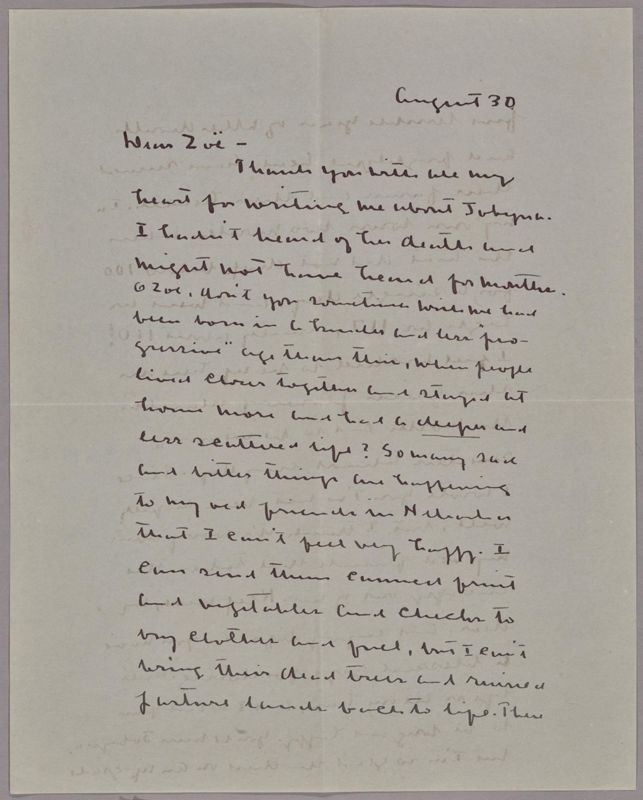 August 30
Dear Zoë –
Thank you with all my
heart for writing me about Jobyna.
I hadn't heard of her death and
might not have heard for months.
O Zoë, don't you sometimes wish we had
been born in a kinder and less "pro-
gressive" age than this, when people
lived closer together and stayed at
home more and had a deeper and
less scattered life? So many sad
and bitter things are happening
to my old friends in Nebraska
that I can't feel very happy. I
can send them canned fruit
and vegetables and checks to
buy clothes and fuel, but I can't
bring their dead trees and ruined
pasture lands back to life. These